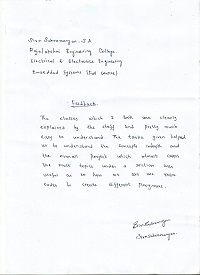 Sivam Subramanyan. J.A
Rajalakshmi Engineering College
Electrical & Electronics Engineering
Embedded Systems
Feedback
The classes which I took was clearly
explained by the staff and pretty much
easy to understand. The tasks given helped
us to understand the concepts indepth and
the overall project which almost covers
the main topics under a section was
useful as to how we can use these
codes to create different Programs.